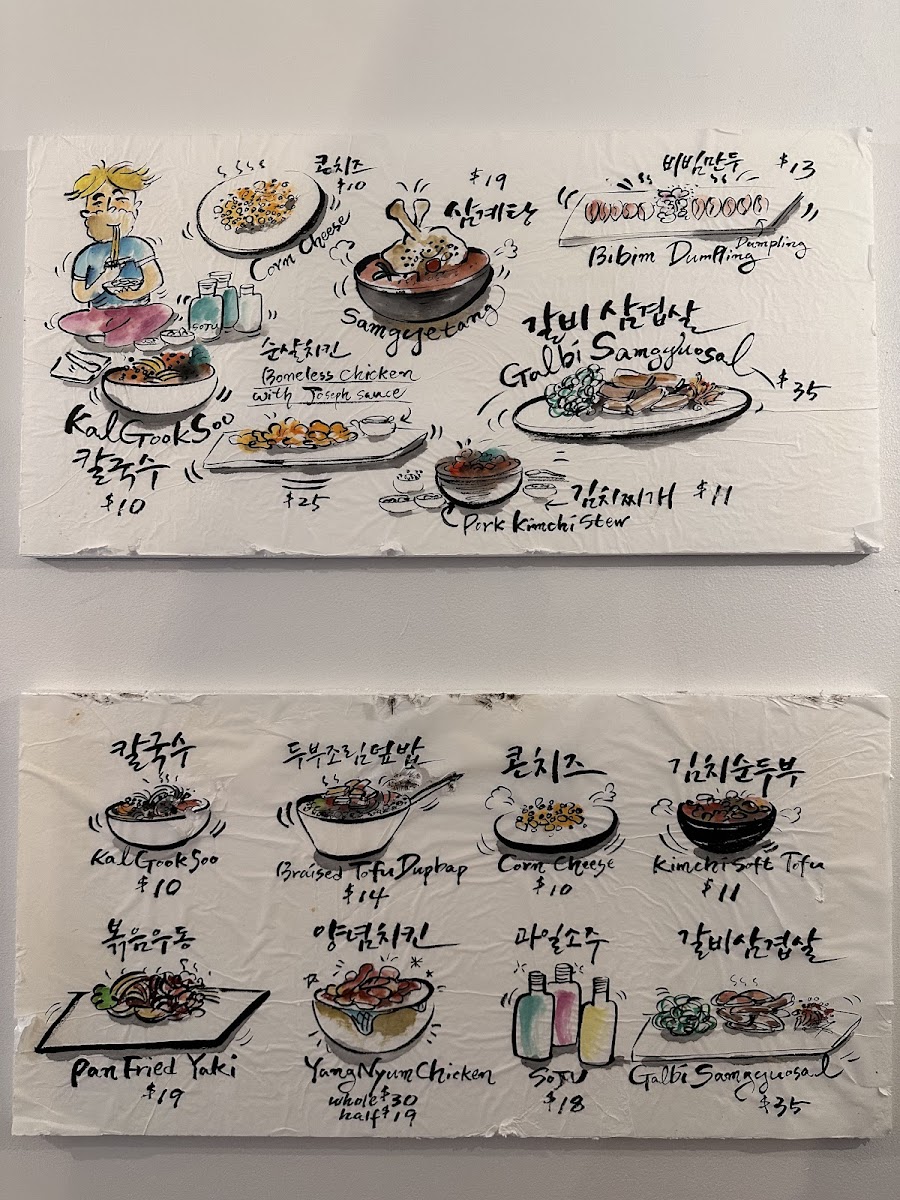 콘치즈
$10
Corn Cheese
$19
삼계탕
Samgyetang
비빔만두
$13
Bibim Dumpling
Dumpling
SOJU
순살치킨
Boneless Chicken
with Joseph sauce
$25
갈비 삼겹살
Galbi Samgyuosal
$35
KalGookSoo
칼국수
$10
김치찌개 $11
Pork Kimchi Stew
칼국수
KalGookSoo
$10
두부조림덮밥
Braised Tofu Dupbap
$14
콘치즈
Corn Cheese
$10
김치순두부
Kimchi Soft Tofu
$11
볶음우동
Pan Fried Yaki
$19
양념치킨
YangNyum Chicken
whole $30
half $19
과일소주
SOJU
$18
갈비삼겹살
Galbi Samgyuosal
$35